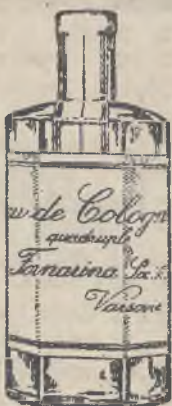 de Cologn
quadruple
Fornarina
Varsovie